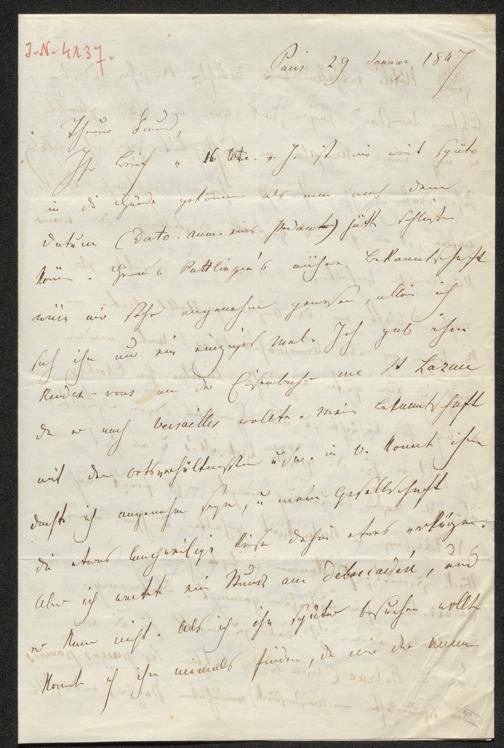 I.N. 4137.
Paris 29 Januar 1847
Theurer Freund,
Ihr Brief v 16 ist mir erst später
in die Hände gekommen als man nach dem
Datum (Dato. num. eins Pedanten) hätte schließen
können. Herrn v Püttlingen's nähere Bekanntschaft
wäre mir sehr angenehm gewesen, allein ich
sah ihn nur ein einziges mal. Ich gab ihm
Rendez-vous an der Eisenbahn rue St Lazare
da er nach Versailles wollte. meine Bekanntschaft
mit den Ortsverhältnissen u.s.w. konnt ihm
dacht ich angenehm seyn, u meine Gesellschaft
die etwas langweilige Reise dahin etwas verkürzen.
Aber ich wartete eine Stunde am debarcadère, und
er kam nicht. Als ich ihn später besuchen wollte
konnt ich ihn niemals finden, da wir die